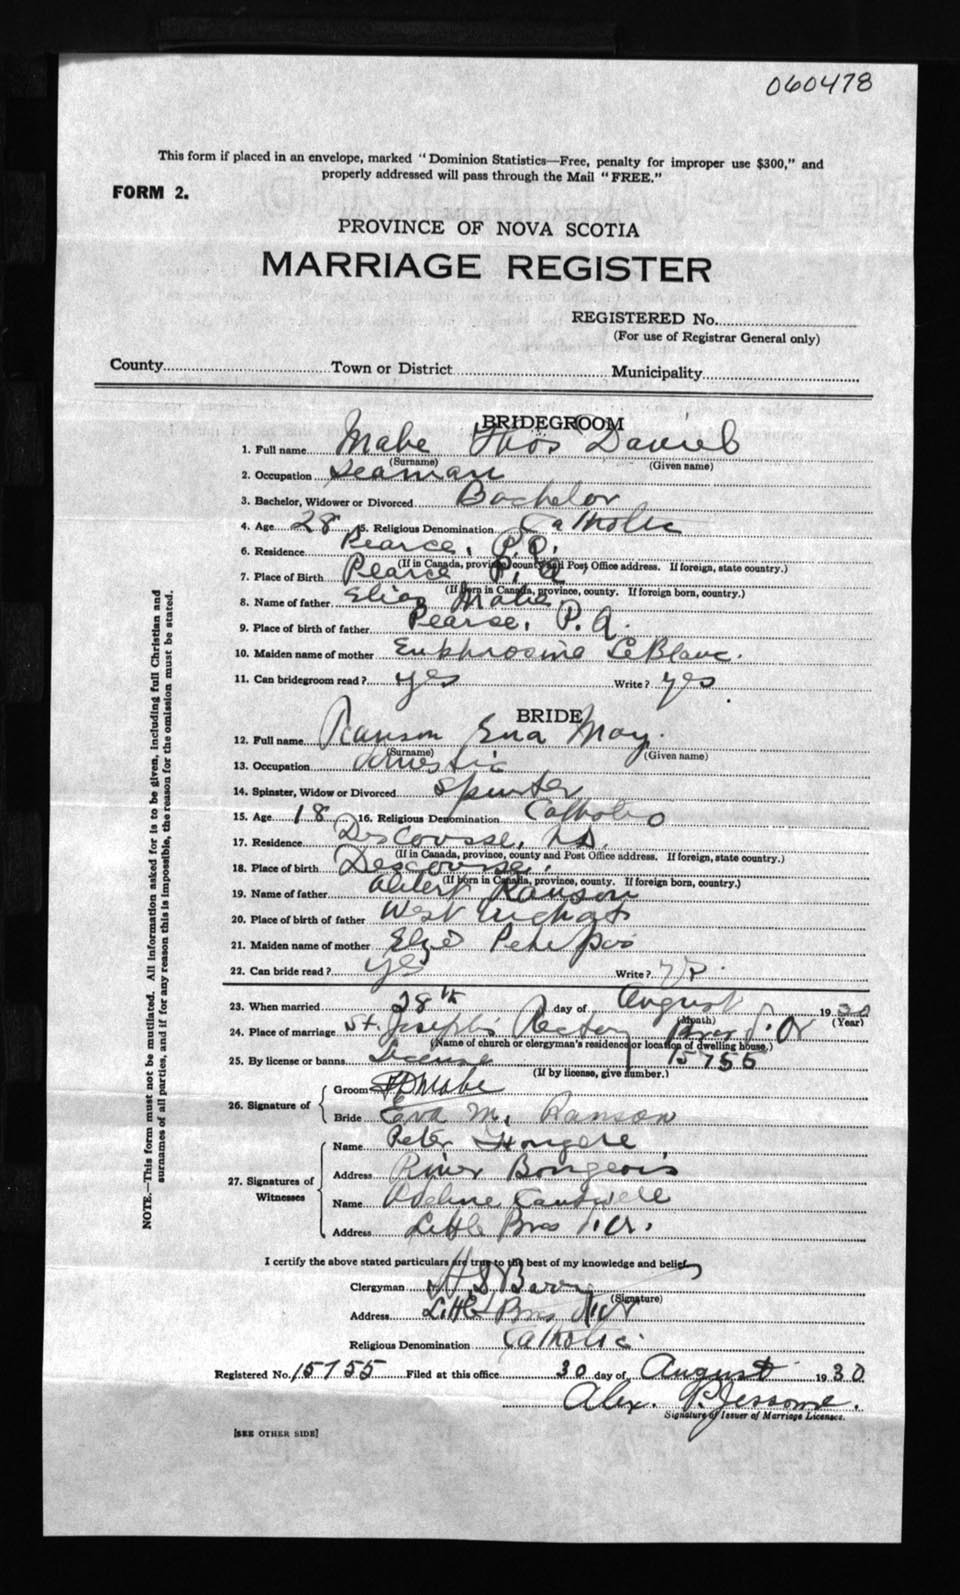 060478
This form if placed in an envelope, marked "Dominion Statistics—Free, penalty for improper use $300," and
properly addressed will pass through the Mail "FREE."
FORM 2.
PROVINCE OF NOVA SCOTIA
MARRIAGE REGISTER
REGISTERED No.
(For use of Registrar General only)
County Town or District Municipality
BRIDEGROOM
1. Full name Mabe Thos Daniel
(Surname) (Given name)
2. Occupation Seaman
3. Bachelor, Widower or Divorced Bachelor
4. Age 28 5. Religious Denomination Catholic
6. Residence Pearce, P.Q.
(If in Canada, province, county and Post Office address. If foreign, state country.)
7. Place of Birth Pearce P.Q.
(If Born in Canada, province, county. If foreign born, country.)
8. Name of father Elias Mabe
9. Place of birth of father Pearse, P.Q.
10. Maiden name of mother Eukhrosine LeBlanc.
11. Can bridegroom read? yes Write? yes.
BRIDE
12. Full name Ranson Eva May.
(Surname) (Given name)
13. Occupation domestic
14. Spinster, Widow or Divorced Spinster
15. Age 18 16. Religious Denomination Catholic
17. Residence Descousse, N.S.
(If in Canada, province, county and Post Office address. If foreign, state country.)
18. Place of birth Descousse.
(If born in Canada, province, county. If foreign born, country.)
19. Name of father Ranson
20. Place of birth of father West
21. Maiden name of mother
22. Can bride read? yes Write?
23. When married 28th day of August 1930
(Month) (Year)
24. Place of marriage St. Joseph's Rectory Bras d'Or
(Name of church or clergyman's residence or location of dwelling house.)
25. By license or banns License 15755
(If by license, give number.)
26. Signature of
Groom Mabe
Bride Eva M. Ranson
27. Signatures of Witnesses
Name Peter
Address River Bourgeois
Name Adeline Cantwell
Address Little Bras d'Or.
I certify the above stated particulars are true to the best of my knowledge and belief,
Clergyman H S Barry
(Signature)
Address Little Bras d'Or
Religious Denomination Catholic.
Registered No. 15755 Filed at this office 30 day of August 1930
Alex. P. Jessome.
Signature of Issuer of Marriage Licenses.
[SEE OTHER SIDE]
NOTE.—This form must not be mutilated. All information asked for is to be given, including full Christian and
surnames of all parties, and if for any reason this is impossible, the reason for the omission must be stated.